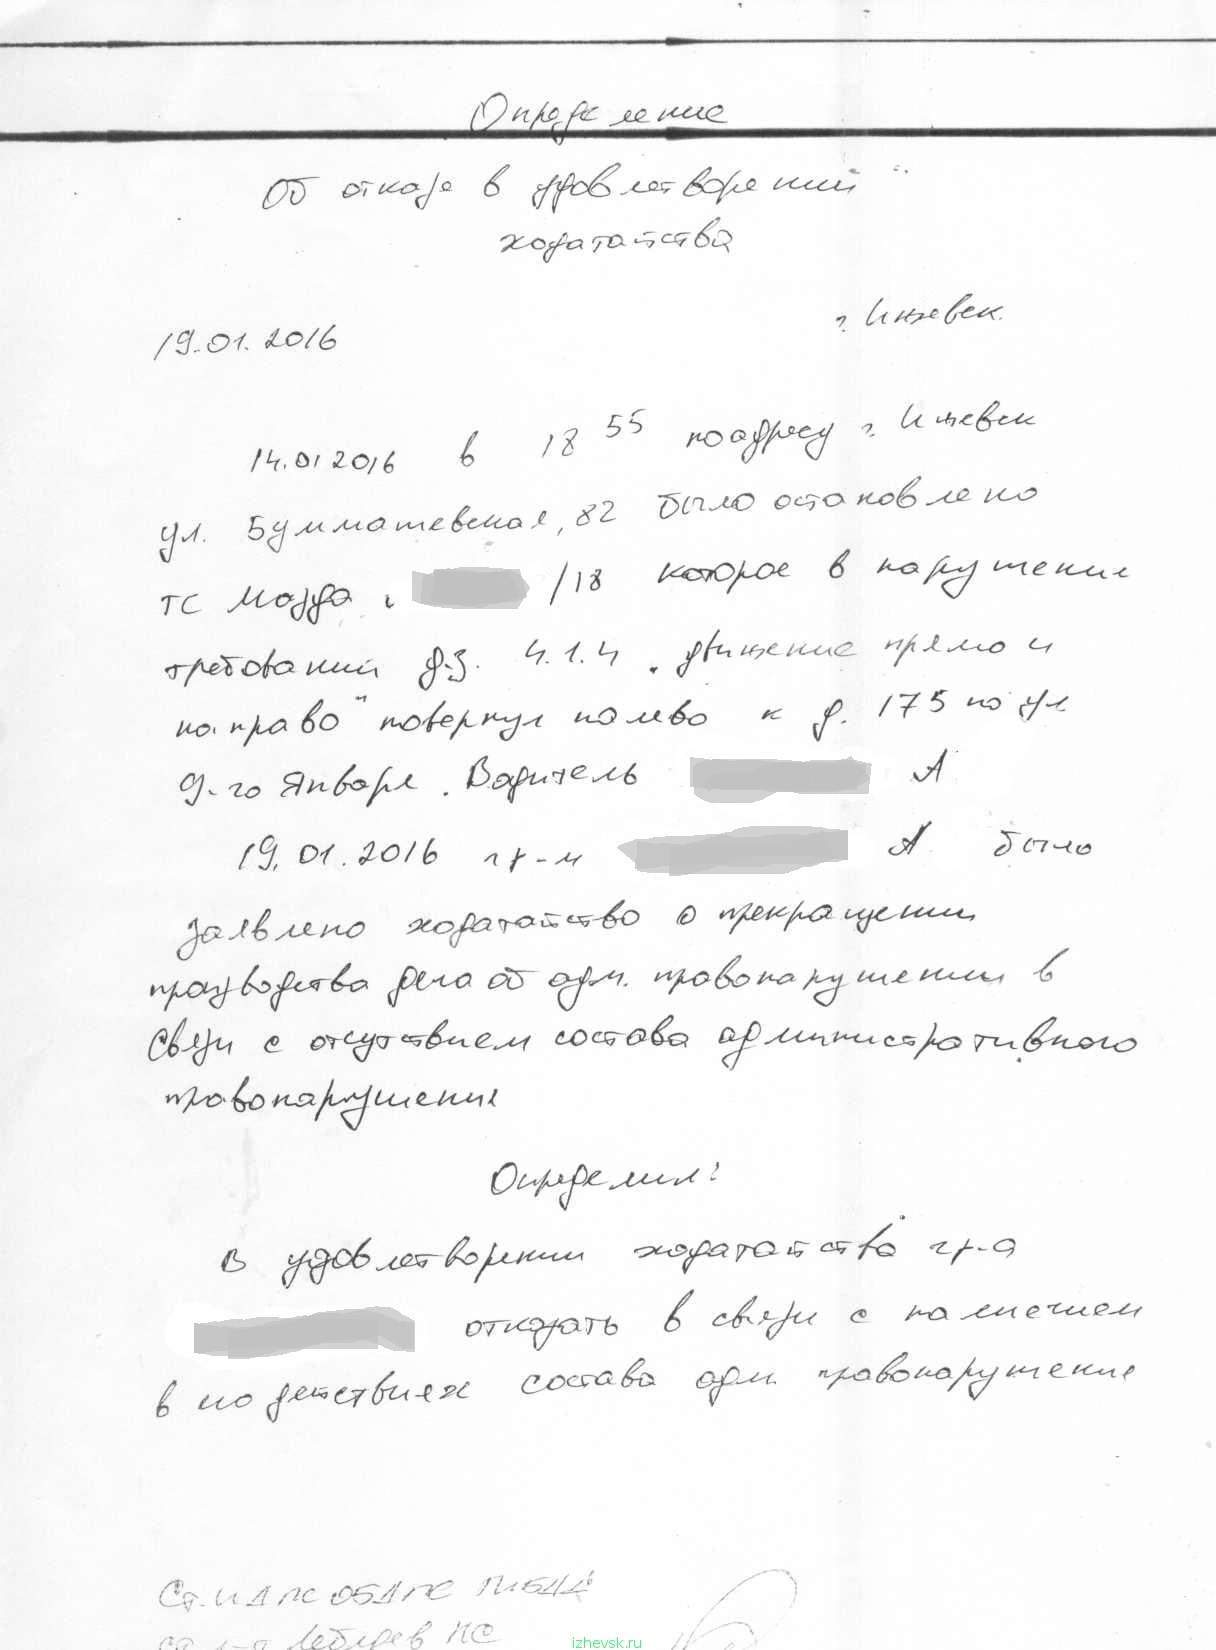 Определение
Об отказе в удовлетворении
ходатайства
г. Ижевск.
19.01.2016
14.01 2016 в 18 55 по адресу г. Ижевск
ул. Буммашевская, 82 было остановлено
ТС Мазда г /18 которое в нарушение
требований д.з. 4.1.4 „движение прямо и
направо" повернул налево к д. 175 по ул
9-го Января. Водитель А
19.01.2016 гр-м А было
заявлено ходатайство о прекращении
производства дела об адм. правонарушении в
связи с отсутствием состава административного
правонарушения
Определил:
В удовлетворении ходатайства гр-а
отказать в связи с наличием
в его действиях состава адм. правонарушения
Ст. ИДПС ОБДПС ГИБДД
ст. л-т Лебедев
izhevsk.ru